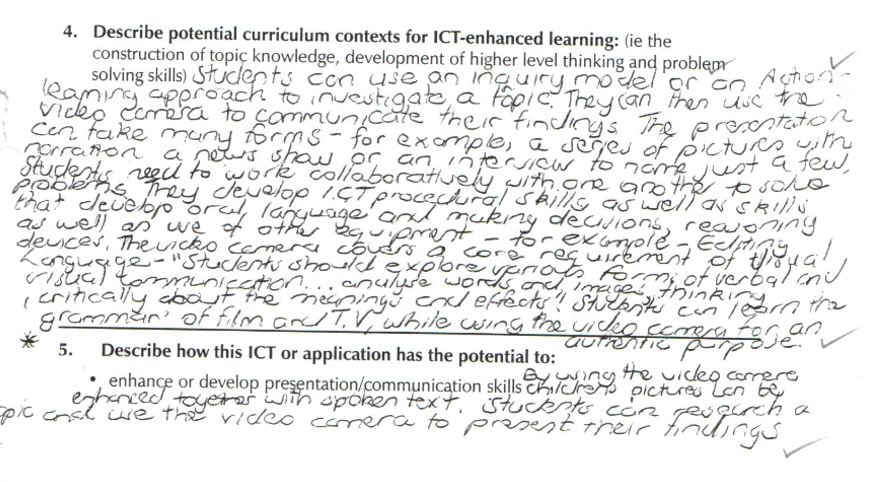 4. Describe potential curriculum contexts for ICT-enhanced learning: (ie the
construction of topic knowledge, development of higher level thinking and problem
solving skills) Students can use an inquiry model or an Action-
learning approach to investigate a topic. They can then use the
video camera to communicate their findings. The presentation
can take many forms - for example, a series of pictures with
narration a news show or an interview to name just a few.
Students need to work collaboratively with one another to solve
problems They develop I.C.T procedural skills as well as skills
that develop oral language and making decisions, reasoning
as well as use of other equipment - for example - Editing
devices. The video camera covers a core requirement of Visual
Language - "Students should explore various forms of verbal and
visual communication... analyse words and images, thinking
critically about the meanings and effects". Students can learn the
grammar' of film and T.V, while using the video camera for an
authentic purpose.
* 5. Describe how this ICT or application has the potential to:
• enhance or develop presentation/communication skills By using the video camera
children's pictures can be
enhanced together with spoken text. Students can research a
opic and use the video camera to present their findings